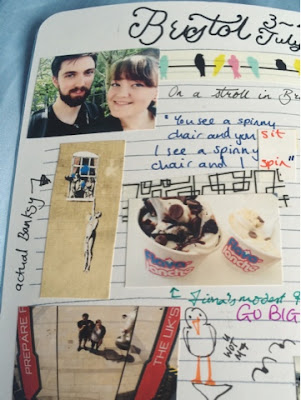 Bristol 3~
July
On a stroll in Br
"You see a spinny
chair and you sit
I see a spinny
chair and I spin"
actual Banksy
Fiona's modest
GO BIG
PREPARE F
THE UK'S